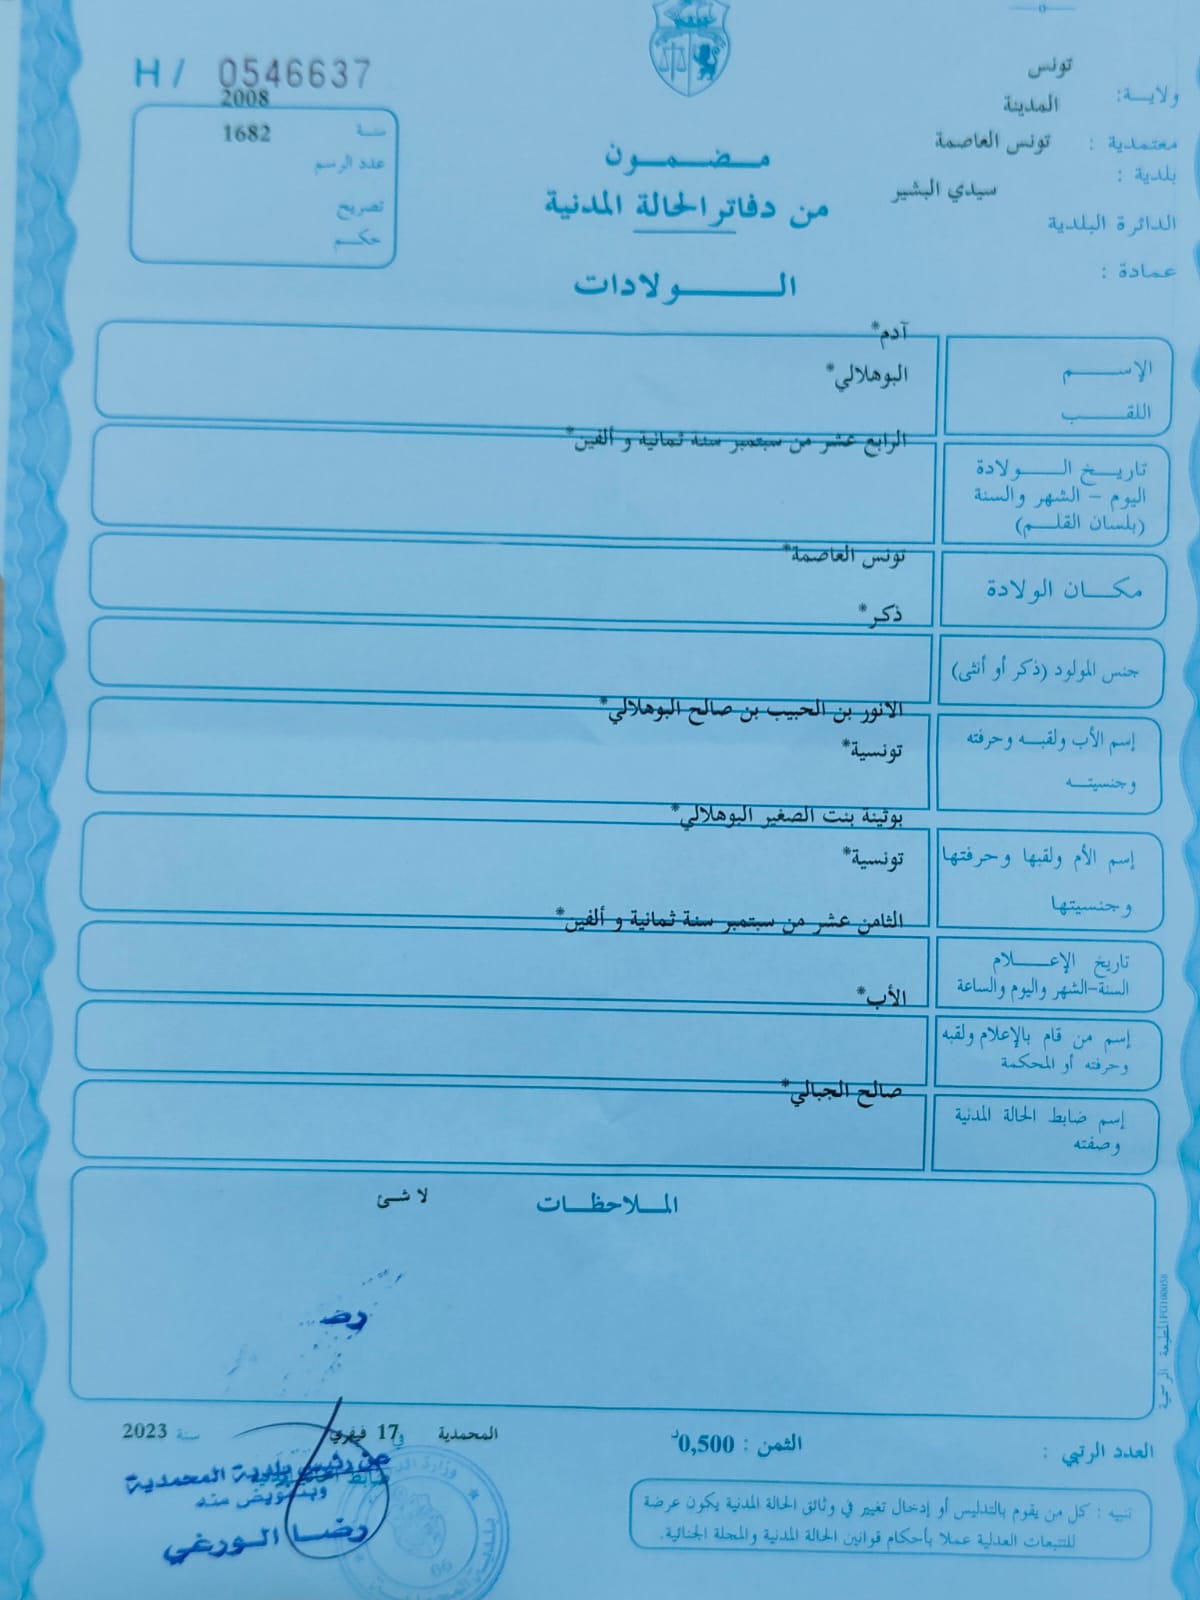 H / 0546637
2008
سنة
1682
عدد الرسم
تصريح
حكم
تونس
ولاية:
المدينة
معتمدية :
تونس العاصمة
بلدية :
سيدي البشير
الدائرة البلدية
عمادة :
مضمون
من دفاتر الحالة المدنية
الولادات
آدم*
الإسم
البوهلالي*
اللقب
الرابع عشر من سبتمبر سنة ثمانية و ألفين*
تاريخ الولادة
اليوم - الشهر والسنة
(بلسان القلم)
تونس العاصمة*
مكان الولادة
ذكر*
جنس المولود (ذكر أو أنثى)
الانور بن الحبيب بن صالح البوهلالي*
إسم الأب ولقبه وحرفته
تونسية*
وجنسيته
بوثينة بنت الصغير البوهلالي*
إسم الأم ولقبها وحرفتها
تونسية*
وجنسيتها
الثامن عشر من سبتمبر سنة ثمانية و ألفين*
تاريخ الإعلام
السنة-الشهر واليوم والساعة
الأب*
إسم من قام بالإعلام ولقبه
وحرفته أو المحكمة
صالح الجبالي*
إسم ضابط الحالة المدنية
وصفته
الملاحظات
لا شئ
رضـ
المطبعة الرسمية
العدد الرتبي :
الثمن : 0,500د
المحمدية في 17 فيفري سنة 2023
ضابط الحالة المدنية
عن رئيس بلدية المحمدية
وبتفويض منه
رضا الورغي
06
تنبيه : كل من يقوم بالتدليس أو إدخال تغيير في وثائق الحالة المدنية يكون عرضة
للتتبعات العدلية عملا بأحكام قوانين الحالة المدنية والمجلة الجنائية.